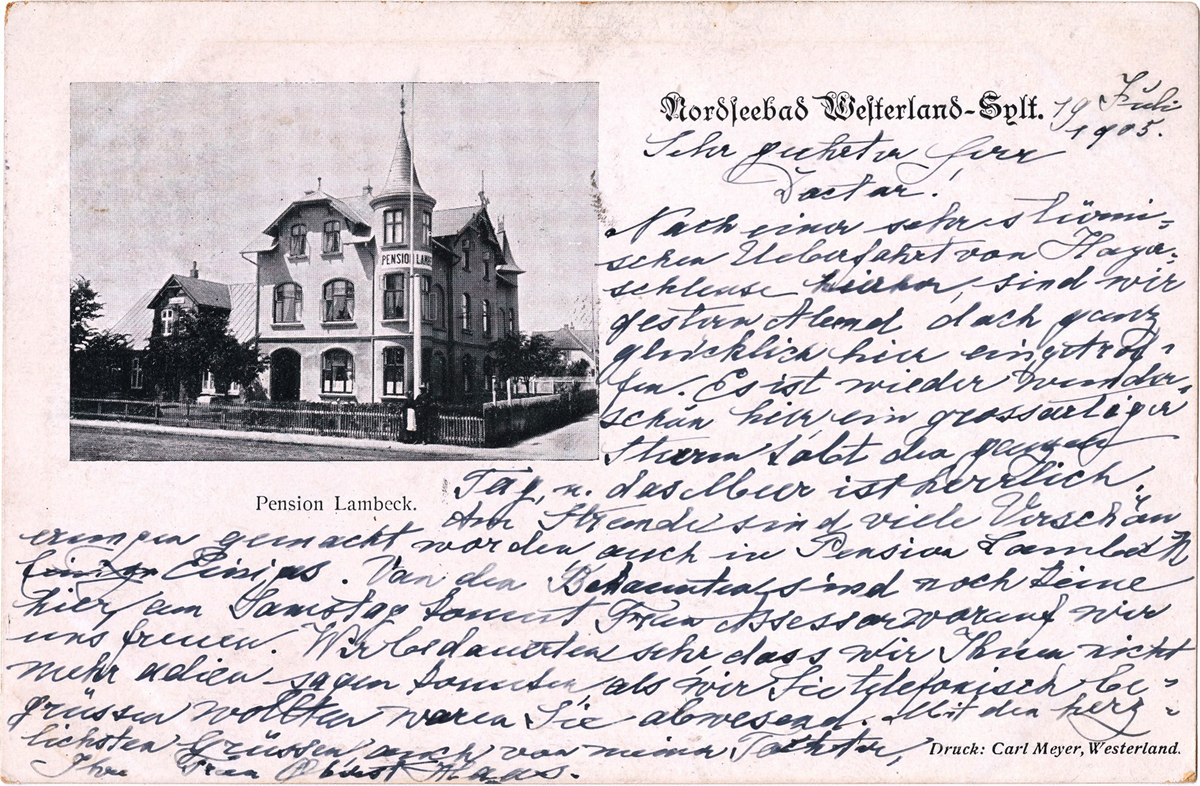 Nordseebad Westerland-Sylt.
19 Juli
1905.
Sehr geehrter Herr
Doctor!
Nach einer sehr stürmi-
schen Ueberfahrt von Hoyer-
schleuse hierher, sind wir
gestern Abend doch ganz
glücklich hier eingetrof-
fen. Es ist wieder wunder-
schön hier ein grossartiger
Sturm tobt den ganzen
Tag, u. das Meer ist herrlich.
Am Strande sind viele Verschön
erungen gemacht worden, auch in Pension Lambeck
Einiges. Von den Bekannten sind noch keine
hier, am Samstag kommt Frau Assessor worauf wir
uns freuen. Wir bedauerten sehr dass wir Ihnen nicht
mehr adieu sagen konnten, als wir Sie telefonisch be-
grüssen wollten waren Sie abwesend. Mit den herz-
lichsten Grüssen, auch von meiner Tochter,
Ihre Frau Oberst Haas.
PENSION LAMBE
Pension Lambeck.
Druck: Carl Meyer, Westerland.